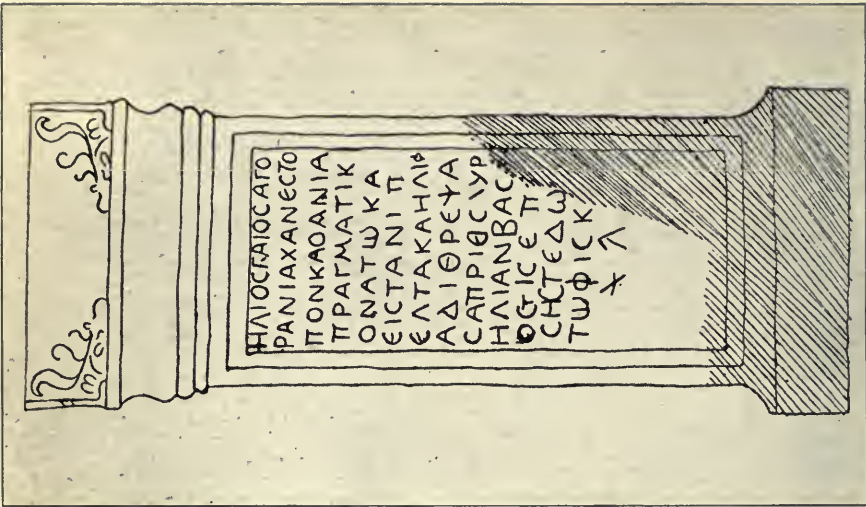 ΗΛΙΟCΓΑΙΟCΑΓΟ
ΡΑΝΙΑΧΑΝΕCΤΟ
ΠΟΝΚΑΟΑΝΙΑ
ΠΡΑΓΜΑΤΙΚ
ΟΝΑΤΩΚΑ
ΕΙCΤΑΝΙ Π
ΕΛΤΑΚΑΗΛΙΦ
ΑΔΙΘΡΕΨΑ
CΑΠΡΙΘCΛΥΡ
ΗΛΙΑΝΒΑC
ΟGΙCΕ Π
CΗCΤΕΔΩ
ΤΩΦΙCΚ
Ӿ Λ